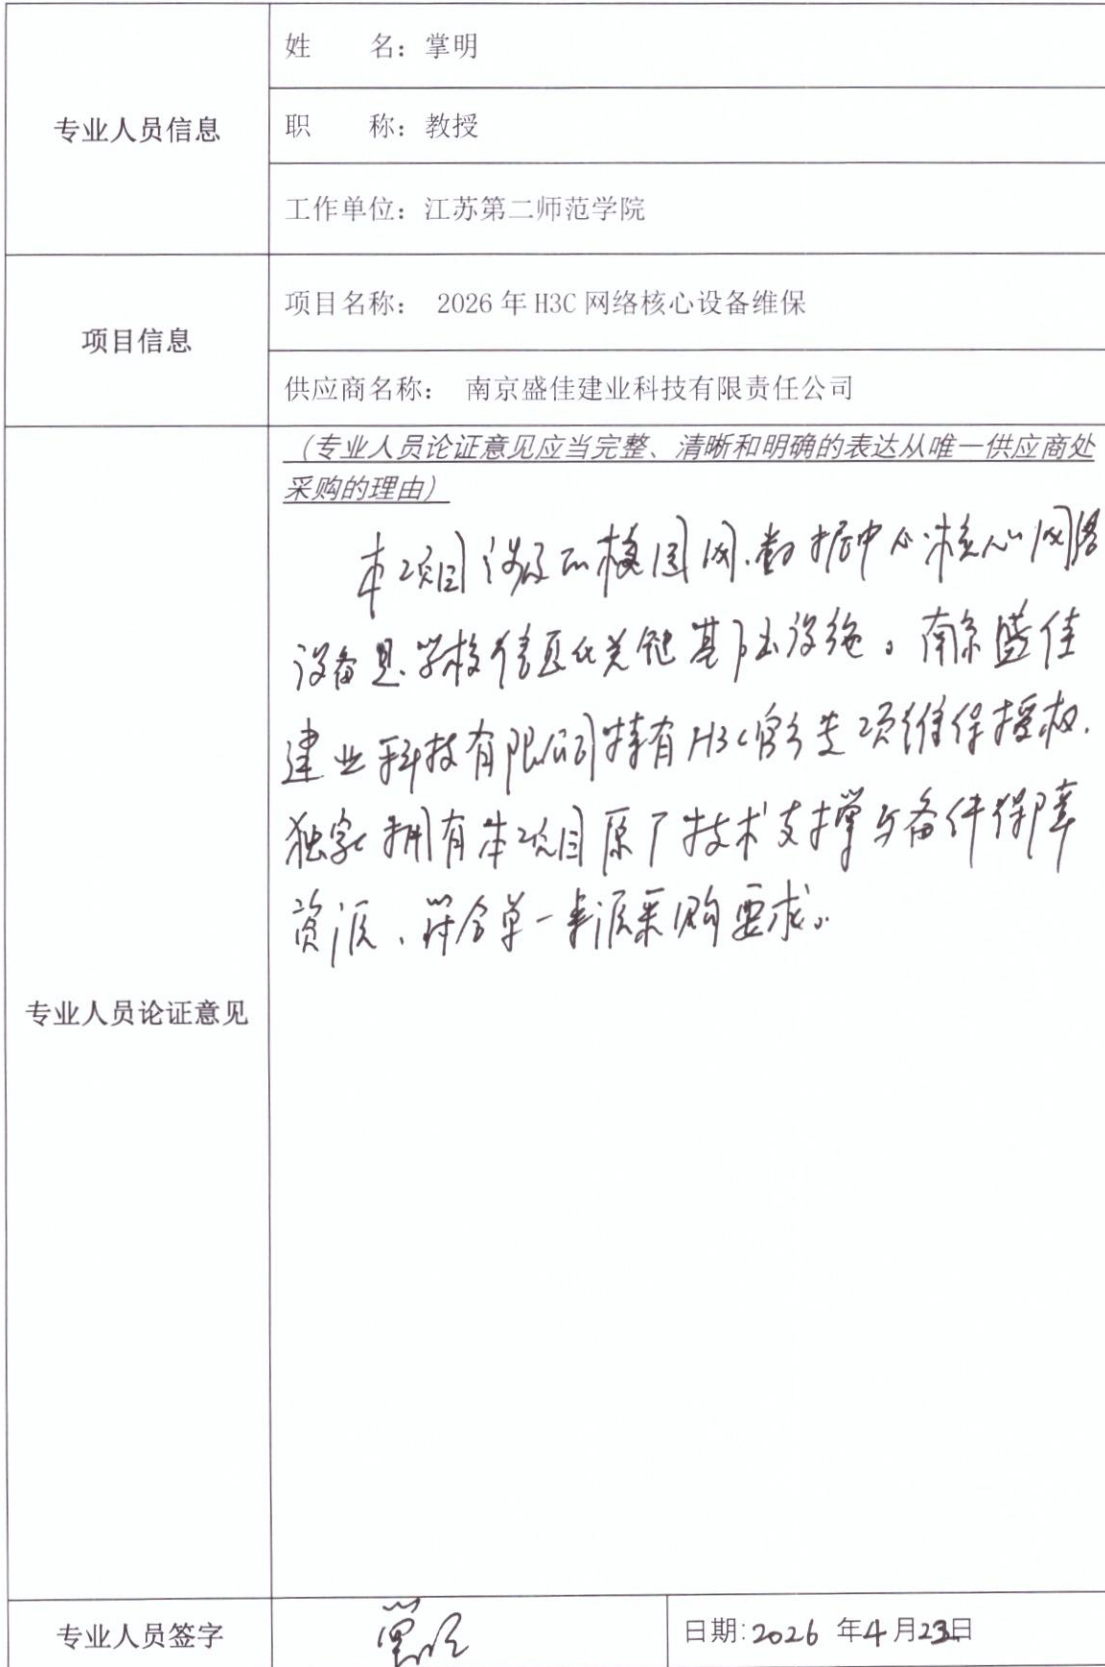 姓 名：掌明
专业人员信息
职 称：教授
工作单位：江苏第二师范学院
项目信息
项目名称： 2026年H3C网络核心设备维保
供应商名称： 南京盛佳建业科技有限责任公司
（专业人员论证意见应当完整、清晰和明确的表达从唯一供应商处
采购的理由）
本项目涉及的校园网、数据中心核心网络
设备是学校信息化关键基础设施。南京盛佳
建业科技有限公司持有H3C官方专项维保授权，
独家拥有本项目原厂技术支撑与备件保障
资源，符合单一来源采购要求。
专业人员论证意见
专业人员签字
掌明
日期:2026 年4月23日